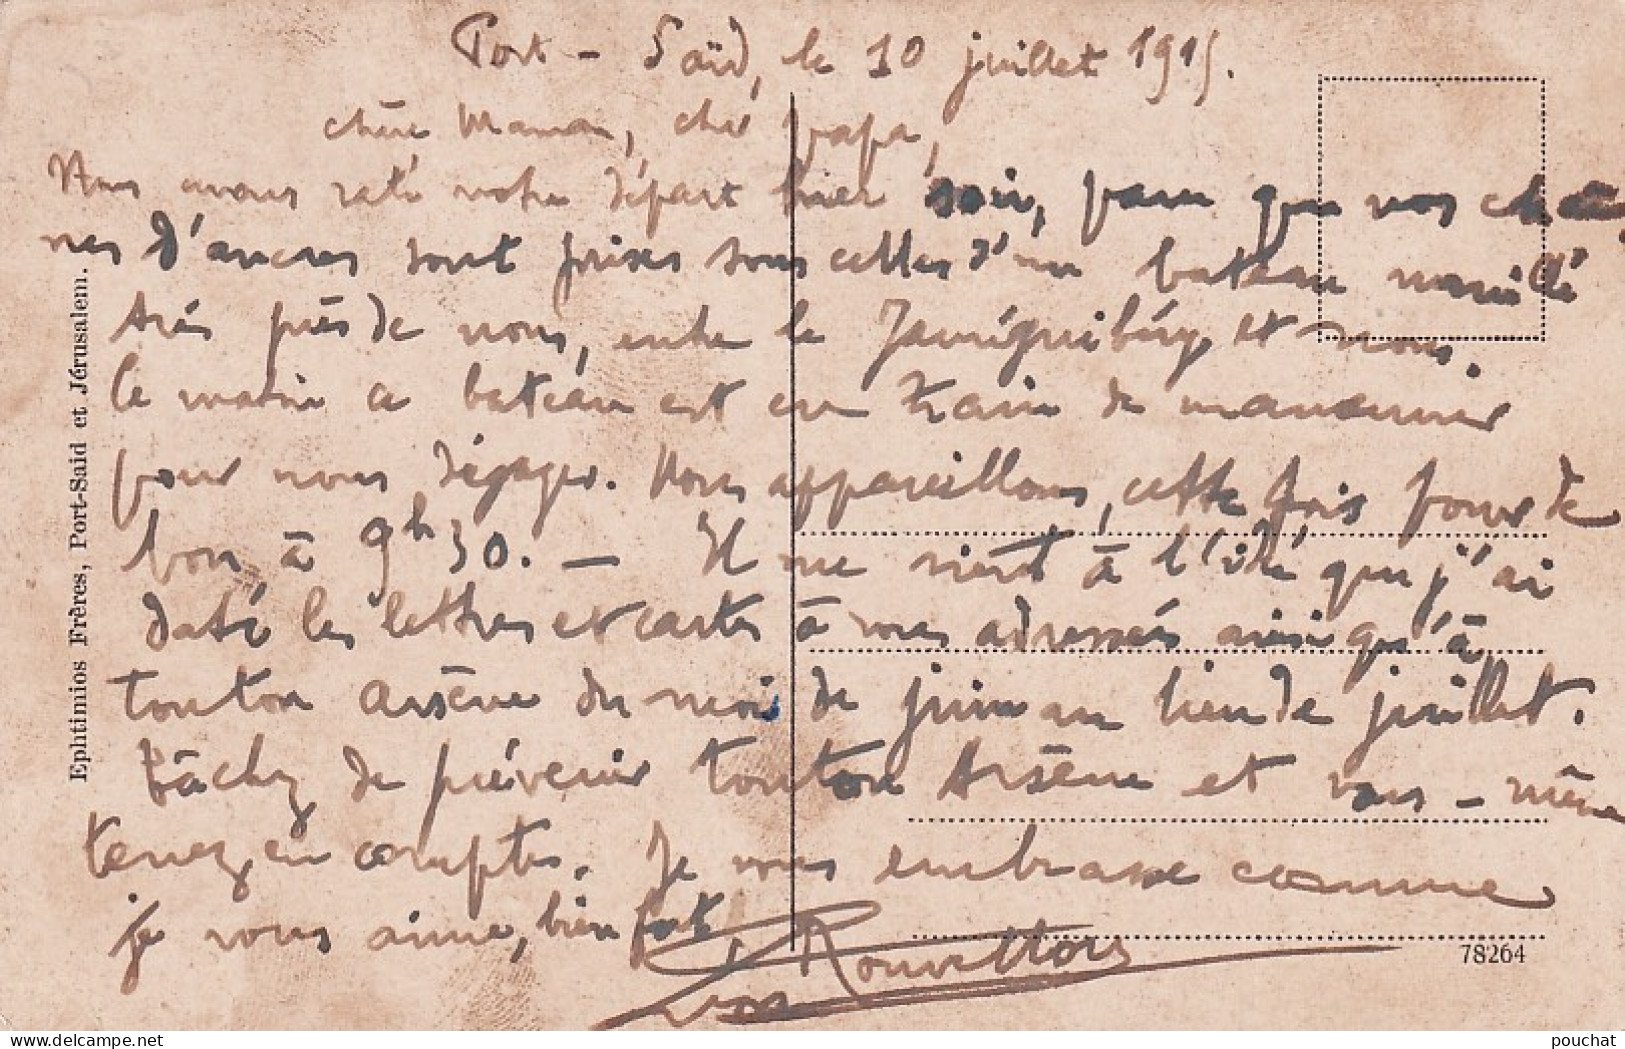 Port-Saïd, le 10 juillet 1915.
chère Maman, cher papa,
Nous avons raté notre départ hier soir, parce que nos chaî
nes d'ancres sont prises sous celles d'un bateau mouillé
très près de nous, entre le Jauréguiberry et nous.
Ce matin ce bateau est en train de manœuvrer
pour nous dégager. Nous appareillons, cette fois pour de
bon, à 9h30. — Il me vient à l'idée que j'ai
daté les lettres et cartes à vous adressées ainsi qu'à
tonton Arsène du mois de juin au lieu de juillet.
Tâchez de prévenir tonton Arsène et vous-même
tenez en compte. Je vous embrasse comme
je vous aime, bien fort,
Ephtimios Frères, Port-Said et Jérusalem.
78264
pouchat